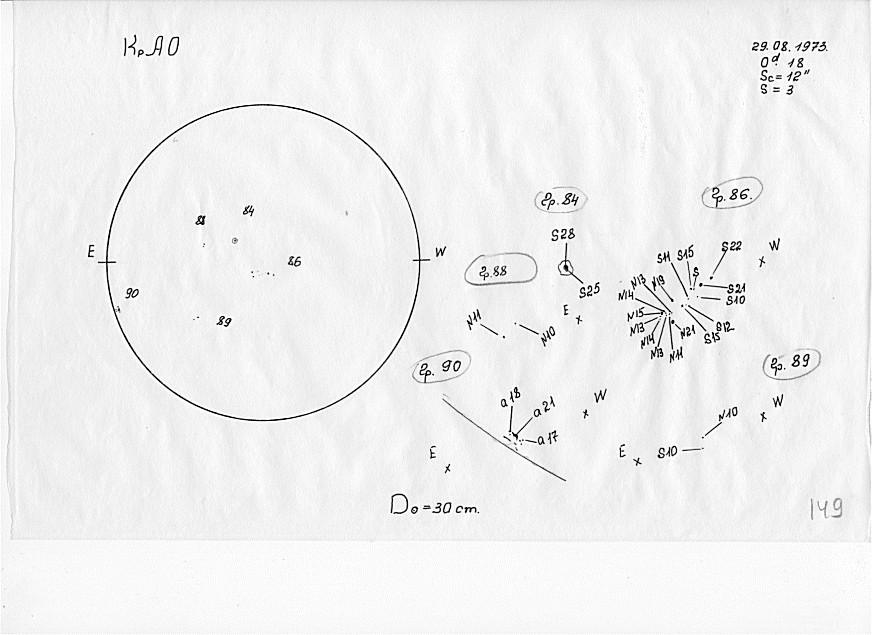 КрАО
29.08.1973.
0ᵈ 18
Sc = 12"
S = 3
E
W
84
88
86
90
89
гр. 84
S28
S25
гр. 86.
W
S22
S
S15
S11
S21
S10
N19
N13
N14
N15
N13
N14
N13
N11
N21
S15
S12
E
гр. 88
N11
N10
W
гр. 90
a 18
a 21
a 17
E
гр. 89
W
N10
S10
E
D₀ = 30 cm.
149